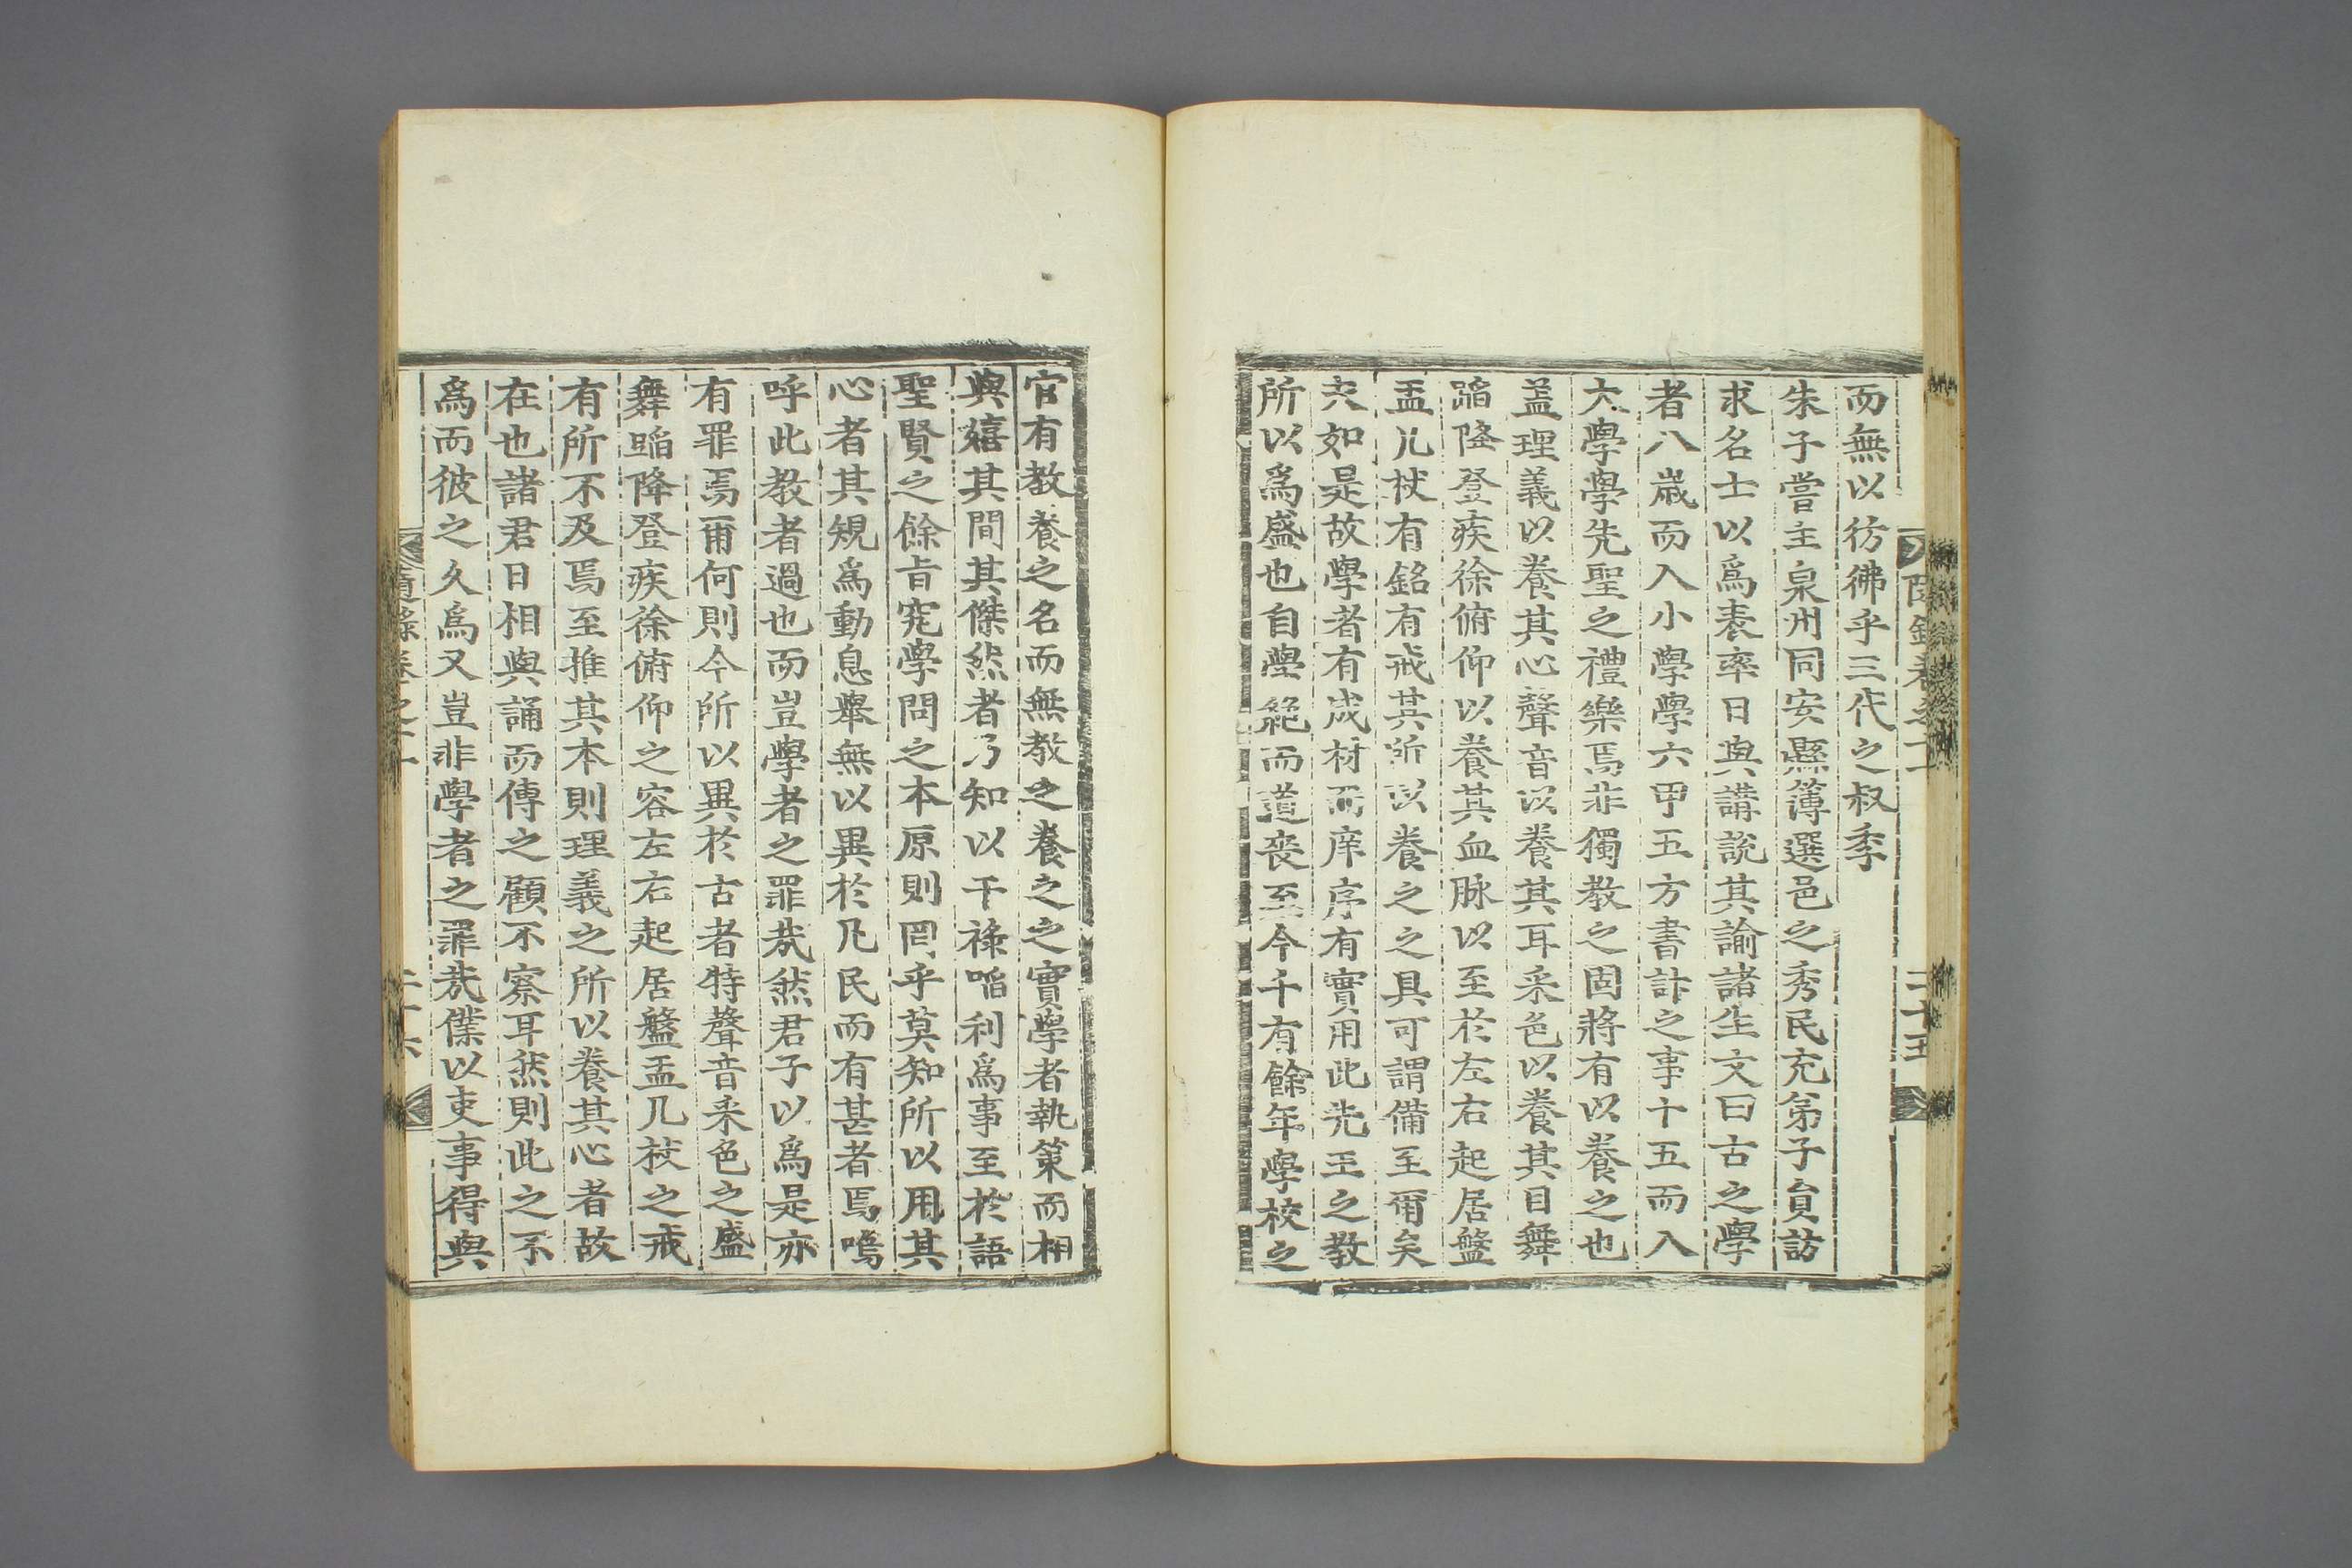 而無以彷彿乎三代之叔季
朱子嘗主泉州同安縣簿選邑之秀民充弟子員訪
求名士以爲表率日與講說其諭諸生文曰古之學
者八歲而入小學學六甲五方書計之事十五而入
大學學先聖之禮樂焉非獨敎之固將有以養之也
盖理義以養其心聲音以養其耳采色以養其目舞
蹈降登疾徐俯仰以養其血脉以至於左右起居盤
盂几杖有銘有戒其所以養之之具可謂備至爾矣
夫如是故學者有成材而庠序有實用此先王之敎
所以爲盛也自學絶而道喪至今千有餘年學校之
二十五
官有敎養之名而無敎之養之之實學者執策而相
與嬉其間其傑然者乃知以干祿啗利爲事至於語
聖賢之餘旨究學問之本原則罔乎莫知所以用其
心者其規爲動息擧無以異於凡民而有甚者焉嗚
呼此敎者過也而豈學者之罪哉然君子以爲是亦
有罪焉爾何則今所以異於古者特聲音采色之盛
舞蹈降登疾徐俯仰之容左右起居盤盂几杖之戒
有所不及焉至推其本則理義之所以養其心者故
在也諸君日相與誦而傳之顧不察耳然則此之不
爲而彼之久爲又豈非學者之罪哉僕以吏事得與
隨錄卷之十